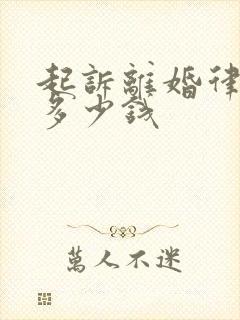 起訴離婚律
多少錢
萬人不迷